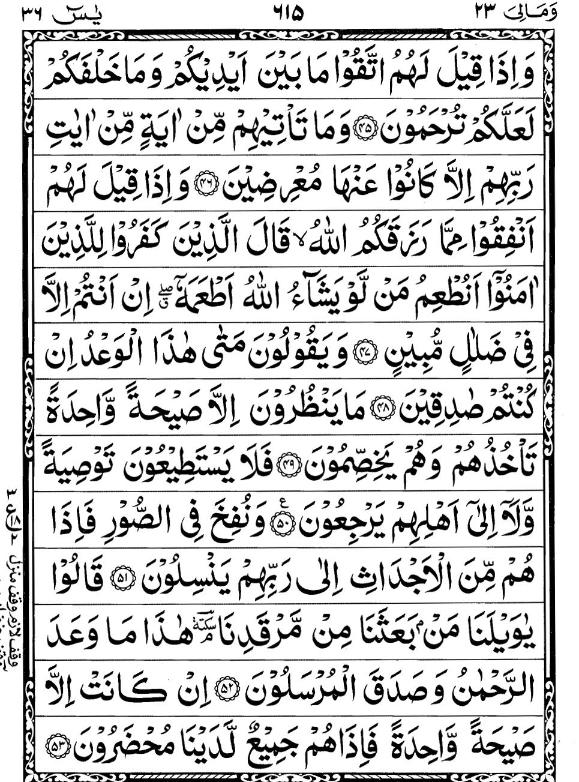 وَمَالِیَ ٢٣ ٦١٥ یٰسٓ ٣٦
وَاِذَا قِیْلَ لَهُمُ اتَّقُوْا مَا بَیْنَ اَیْدِیْكُمْ وَمَا خَلْفَكُمْ
لَعَلَّكُمْ تُرْحَمُوْنَ ﴿۴۵﴾ وَمَا تَاْتِیْهِمْ مِّنْ اٰیَةٍ مِّنْ اٰیٰتِ
رَبِّهِمْ اِلَّا كَانُوْا عَنْهَا مُعْرِضِیْنَ ﴿۴۶﴾ وَاِذَا قِیْلَ لَهُمْ
اَنْفِقُوْا مِمَّا رَزَقَكُمُ اللّٰهُ ۙ قَالَ الَّذِیْنَ كَفَرُوْا لِلَّذِیْنَ
اٰمَنُوْۤا اَنُطْعِمُ مَنْ لَّوْ یَشَآءُ اللّٰهُ اَطْعَمَهٗۤ ۖۗ اِنْ اَنْتُمْ اِلَّا
فِیْ ضَلٰلٍ مُّبِیْنٍ ﴿۴۷﴾ وَیَقُوْلُوْنَ مَتٰی هٰذَا الْوَعْدُ اِنْ
كُنْتُمْ صٰدِقِیْنَ ﴿۴۸﴾ مَا یَنْظُرُوْنَ اِلَّا صَیْحَةً وَّاحِدَةً
تَاْخُذُهُمْ وَهُمْ یَخِصِّمُوْنَ ﴿۴۹﴾ فَلَا یَسْتَطِیْعُوْنَ تَوْصِیَةً
وَّلَاۤ اِلٰۤی اَهْلِهِمْ یَرْجِعُوْنَ ﴿۵۰﴾ ع وَنُفِخَ فِی الصُّوْرِ فَاِذَا
هُمْ مِّنَ الْاَجْدَاثِ اِلٰی رَبِّهِمْ یَنْسِلُوْنَ ﴿۵۱﴾ قَالُوْا
یٰوَیْلَنَا مَنْۢ بَعَثَنَا مِنْ مَّرْقَدِنَا ۘ سكتة هٰذَا مَا وَعَدَ
الرَّحْمٰنُ وَصَدَقَ الْمُرْسَلُوْنَ ﴿۵۲﴾ اِنْ كَانَتْ اِلَّا
صَیْحَةً وَّاحِدَةً فَاِذَا هُمْ جَمِیْعٌ لَّدَیْنَا مُحْضَرُوْنَ ﴿۵۳﴾
وقف لازم وقف منزل